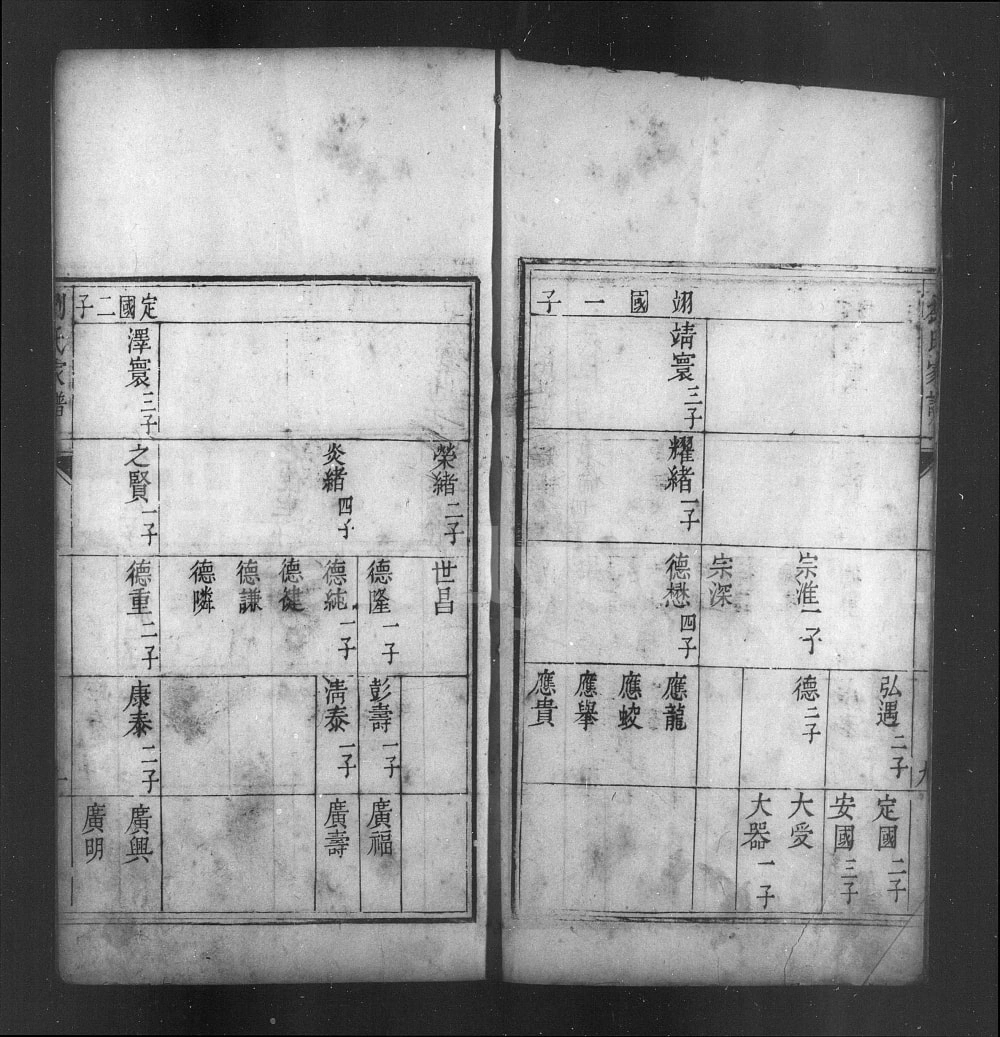 劉氏家譜
弘遇 二子
定國 二子
安國 三子
宗淮 一子
德 二子
大受
大器 一子
宗深
翊國一子
靖寰 三子
耀緒 一子
德懋 四子
應龍
應蛟
應舉
應貴
榮緒 二子
世昌
德隆 一子
彭壽 一子
廣福
炎緒 四子
德純 一子
清泰 一子
廣壽
德健
德謙
德隣
定國二子
澤寰 三子
之賢 一子
德重 二子
康泰 二子
廣興
廣明
劉氏家譜